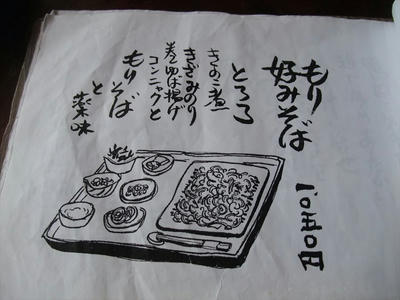 もり
好みそば
一〇五〇円
とろろ
きのこ煮
きざみのり
巻ゆば揚げ
コンニャクと
もりそば
と
薬味